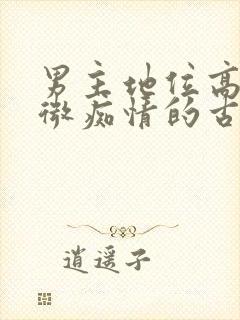 男主地位高
微痴情的古
逍遥子